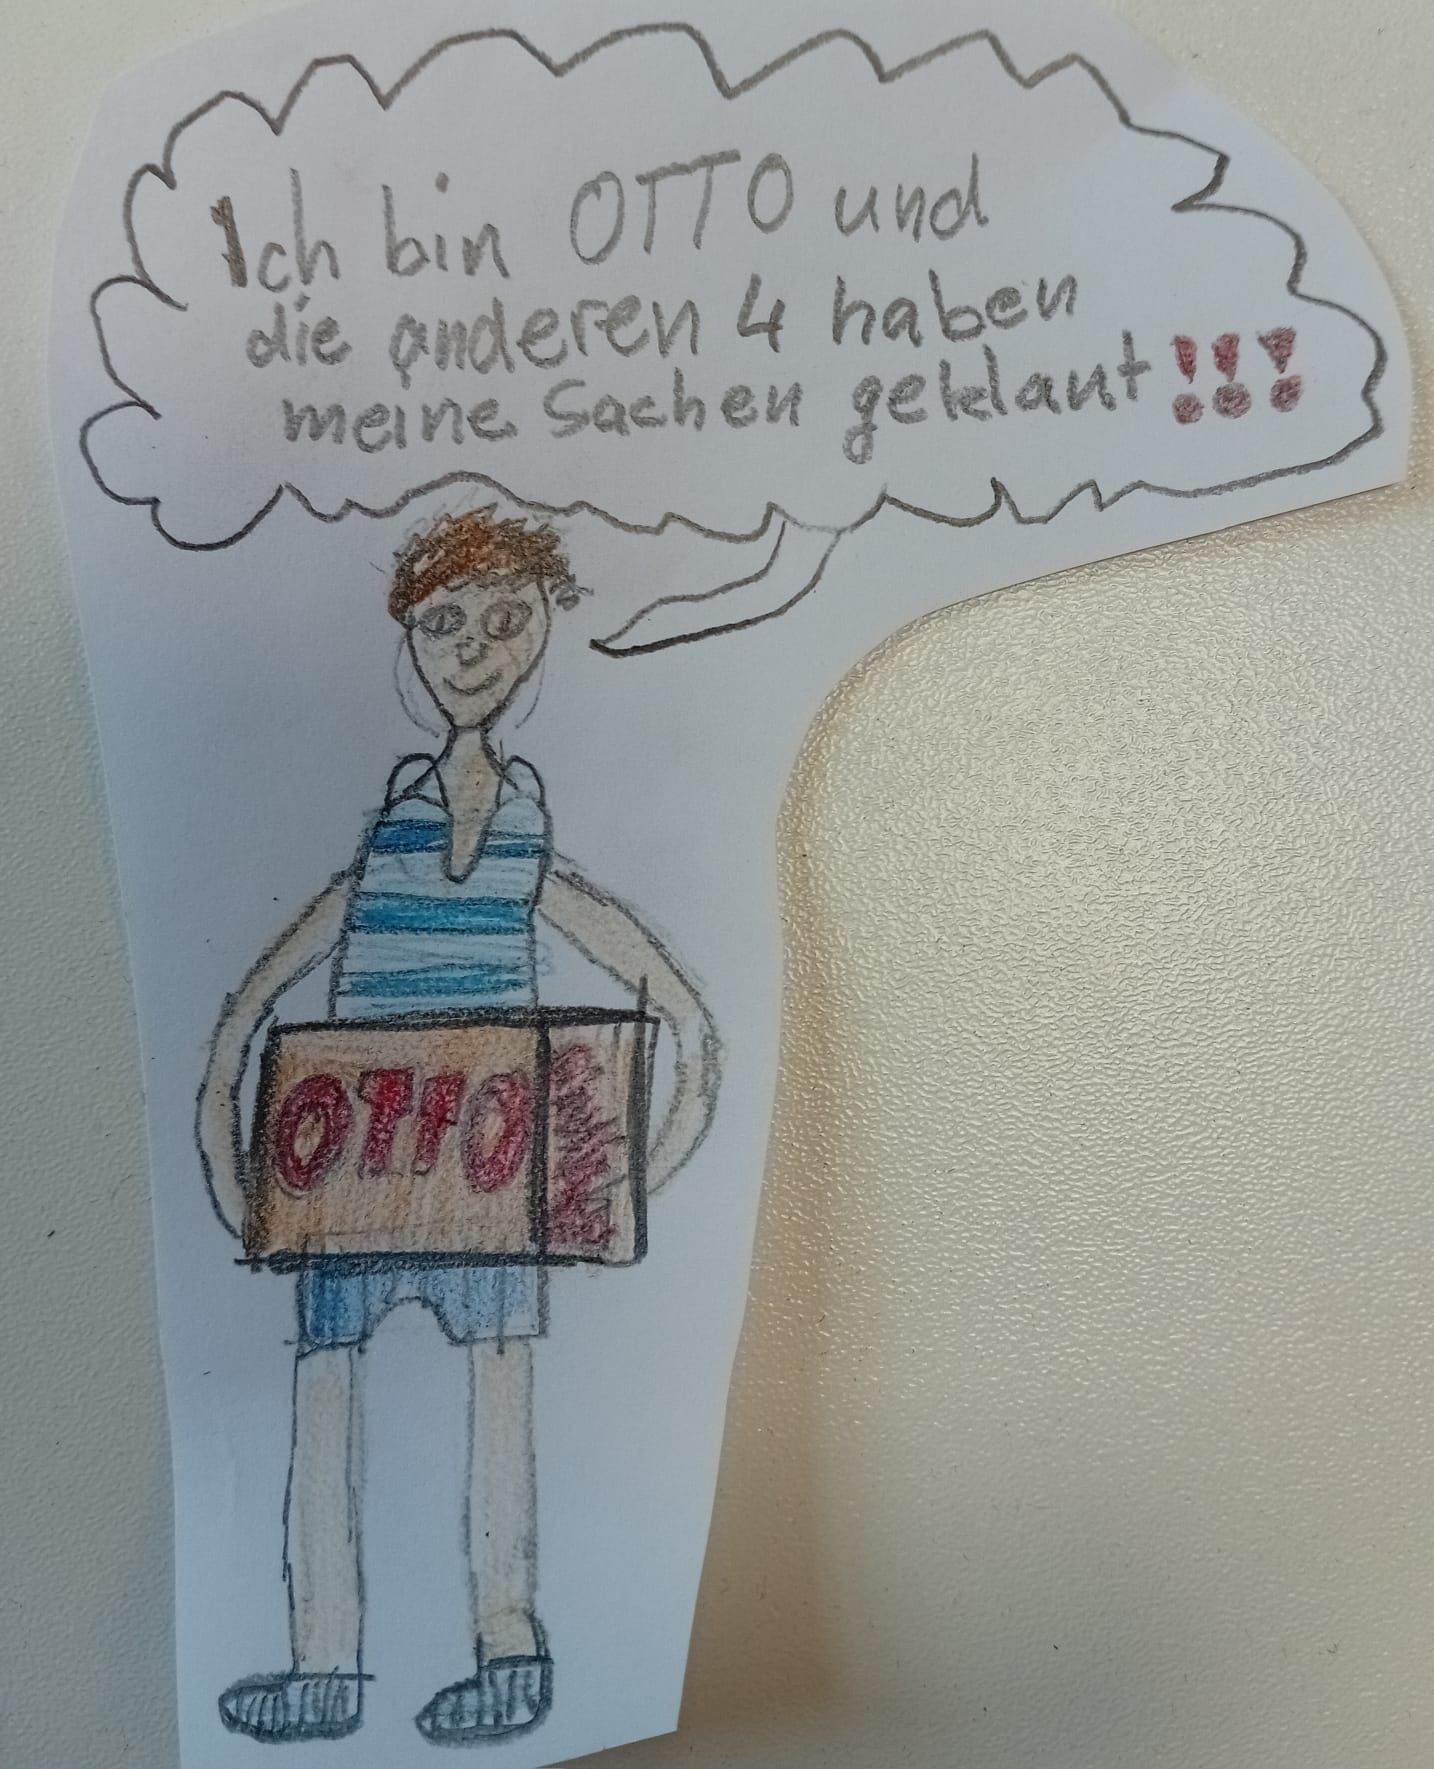 Ich bin OTTO und
die anderen 4 haben
meine Sachen geklaut!!!
OTTO